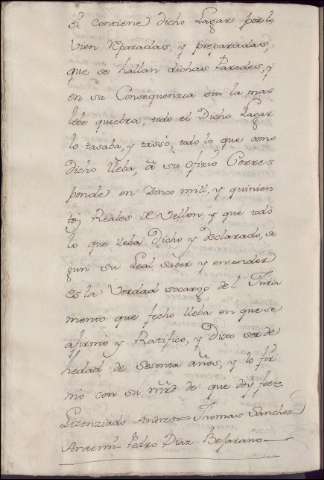 el contiene dicho Lagar por lo
vien Reparadas, y preparadas,
que se hallan dichas Paredes, y
en su Consequenzia esta la mas
leve quiebra, todo el Dicho Lagar
lo tasaba, y tasó, todo lo que como
dicho lleba, á su ofizio Corres
ponde en Doze mill, y quinien
tos Reales de Vellon, y que todo
lo que lleba Dicho y declarado, se
gun su Leal saver y entender
es la Verdad so cargo del Jura
mento que fecho lleba en que se
afirmó y Ratificó, y Dixo ser de
hedad de Sesenta años, y lo fir
mó con su mrd de que doy fee=
Lizenziado Thomas Sanchez
Antemi Pedro Diaz Bejarano